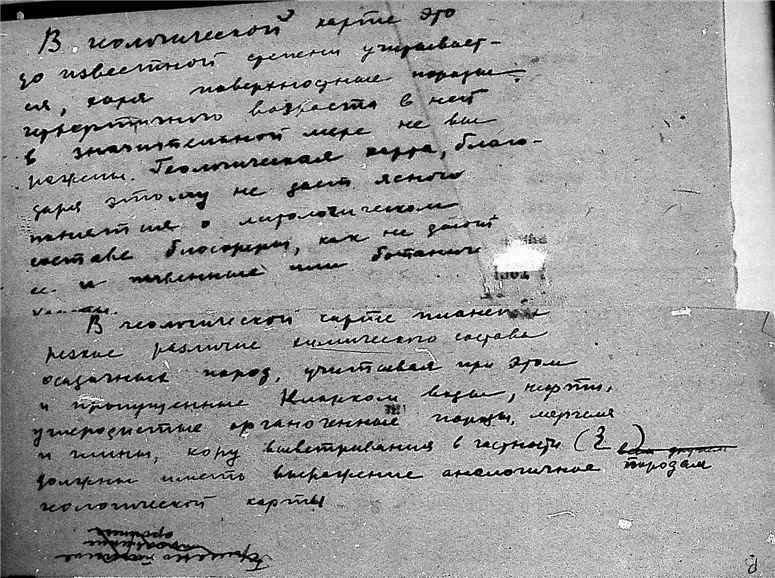 В геологической карте это
до известной степени учитывает-
ся, хотя поверхностные породы
четвертичного возраста в ней
в значительной мере не вы
ражены. Геологическая карта, благо-
даря этому не дает ясного
понятия о литологическом
составе биосферы, как не дают
ее и почвенные или ботаниче
В геологической карте планеты
резкое различие химического состава
осадочных пород, учитывая при этом
и пропущенные Кларком воды, нефти,
углеродистые органогенные породы, мергеля
и глины, кору выветривания в частности (
должны иметь выражение аналогичное породам
геологической карты